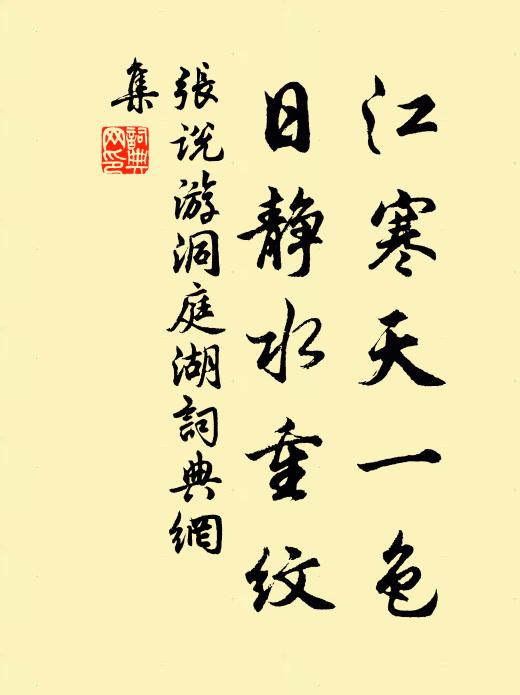 江寒天一色
日静水重紋
張説游洞庭湖詞典網
集
詞典
网印